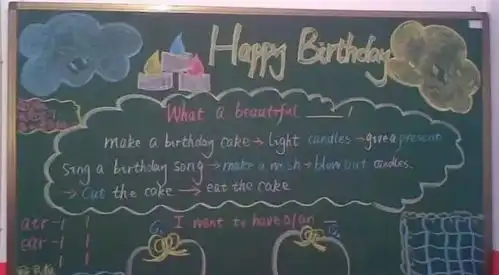 Happy Birthday
What a beautiful ____!
make a birthday cake → light candles → give a present
Sing a birthday song → make a wish → blow out candles.
→ Cut the cake → eat the cake
I want to have a/an __
G1 G2